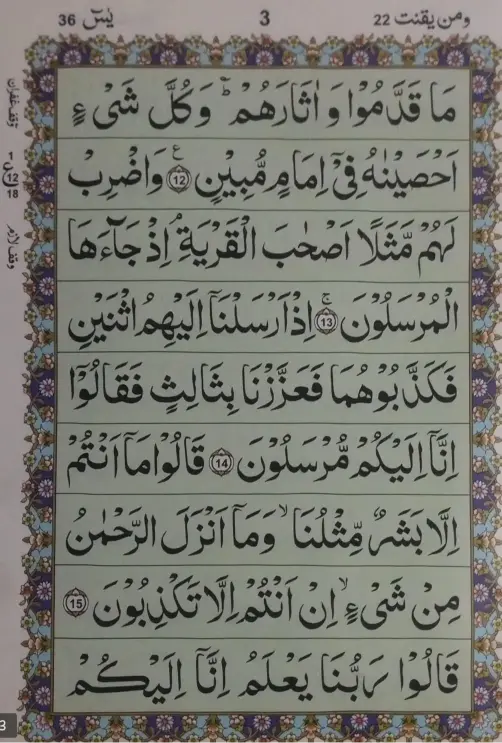 ومن يقنت 22
3
يٰسٓ 36
مَا قَدَّمُوْا وَ اٰثَارَهُمْ ؕ وَكُلَّ شَیْءٍ
اَحْصَيْنٰهُ فِیْۤ اِمَامٍ مُّبِيْنٍ ﴿12﴾ ع وَاضْرِبْ
لَهُمْ مَّثَلًا اَصْحٰبَ الْقَرْيَةِ ۘ اِذْ جَآءَهَا
الْمُرْسَلُوْنَ ﴿13﴾ ۚ اِذْ اَرْسَلْنَاۤ اِلَيْهِمُ اثْنَيْنِ
فَكَذَّبُوْهُمَا فَعَزَّزْنَا بِثَالِثٍ فَقَالُوْۤا
اِنَّاۤ اِلَيْكُمْ مُّرْسَلُوْنَ ﴿14﴾ قَالُوْا مَاۤ اَنْتُمْ
اِلَّا بَشَرٌ مِّثْلُنَا ۙ وَمَاۤ اَنْزَلَ الرَّحْمٰنُ
مِنْ شَیْءٍ ۙ اِنْ اَنْتُمْ اِلَّا تَكْذِبُوْنَ ﴿15﴾
قَالُوْا رَبُّنَا يَعْلَمُ اِنَّاۤ اِلَيْكُمْ
وقف غفران
1
ع
12
18
وقف لازم
3